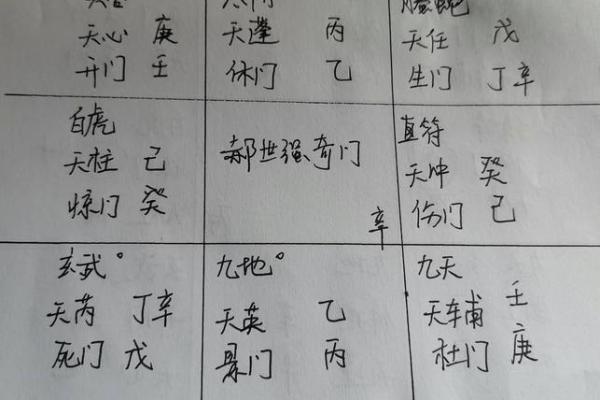 螣蛇
天心 庚
开门 壬
天蓬 丙
休门 乙
天任 戊
生门 丁辛
白虎
天柱 己
惊门 癸
郝世强奇门
辛
直符
天冲 癸
伤门 己
玄武°
天芮 丁辛
死门 戊
九地°
天英 乙
景门 丙
九天
天辅 壬
杜门 庚